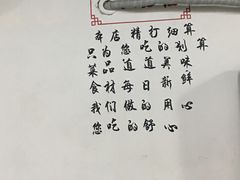 本店精打细算
只为您吃的到
菜品道道美味
食材每日新鲜
我们做的用心
您吃的舒心